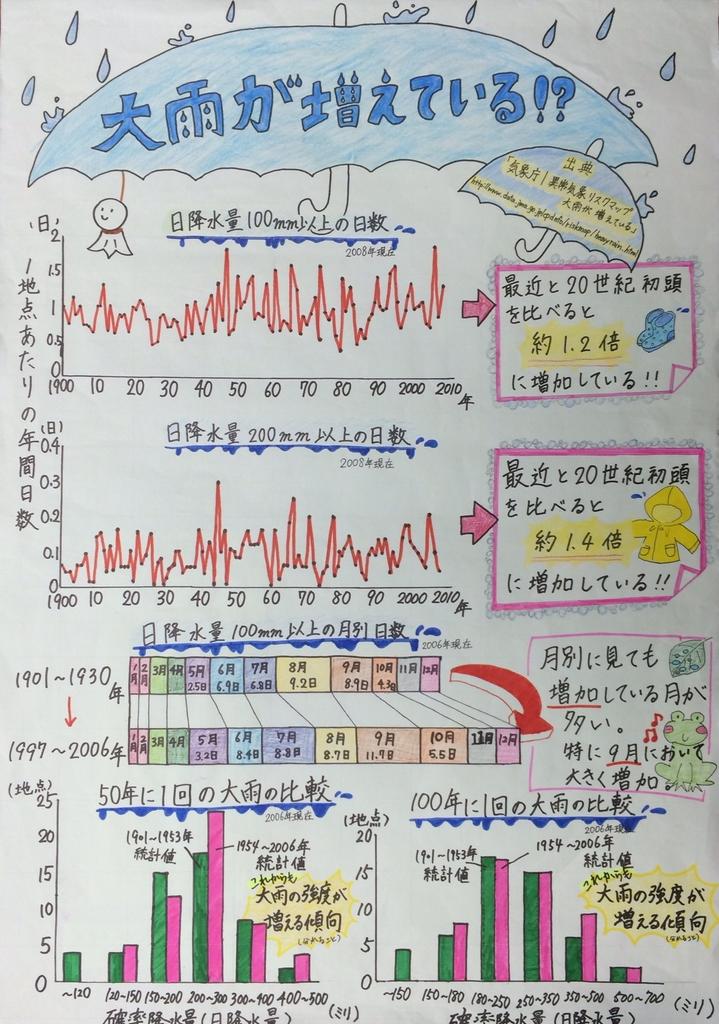 大雨が増えている!?
出典
「気象庁|異常気象リスクマップ
大雨が増えている」
日降水量100mm以上の日数
2008年現在
1地点あたりの年間日数
(日)
2
1.5
1
0.5
0
1900 10 20 30 40 50 60 70 80 90 2000 2010年
最近と20世紀初頭
を比べると
約1.2倍
に増加している!!
日降水量200mm以上の日数
2008年現在
(日)
0.4
0.3
0.2
0.1
0
1900 10 20 30 40 50 60 70 80 90 2000 2010年
最近と20世紀初頭
を比べると
約1.4倍
に増加している!!
日降水量100mm以上の月別日数
2006年現在
1901~1930年
1月 2月 3月 4月 5月 6月 7月 8月 9月 10月 11月 12月
2.5日 6.9日 6.8日 9.2日 8.9日 4.3日
1997~2006年
1月 2月 3月 4月 5月 6月 7月 8月 9月 10月 11月 12月
3.2日 8.4日 8.8日 8.7日 11.7日 5.5日
月別に見ても
増加している月が
多い。
特に9月において
大きく増加。
50年に1回の大雨の比較
2006年現在
(地点)
25
20
15
10
5
0
1901~1953年
統計値
1954~2006年
統計値
これからも
大雨の強度が
増える傾向
~120 120~150 150~200 200~300 300~400 400~500 (ミリ)
確率降水量(日降水量)
100年に1回の大雨の比較
2006年現在
(地点)
20
15
10
5
0
1901~1953年
統計値
1954~2006年
統計値
これからも
大雨の強度が
増える傾向
~150 150~180 180~250 250~350 350~500 500~700 (ミリ)
確率降水量(日降水量)